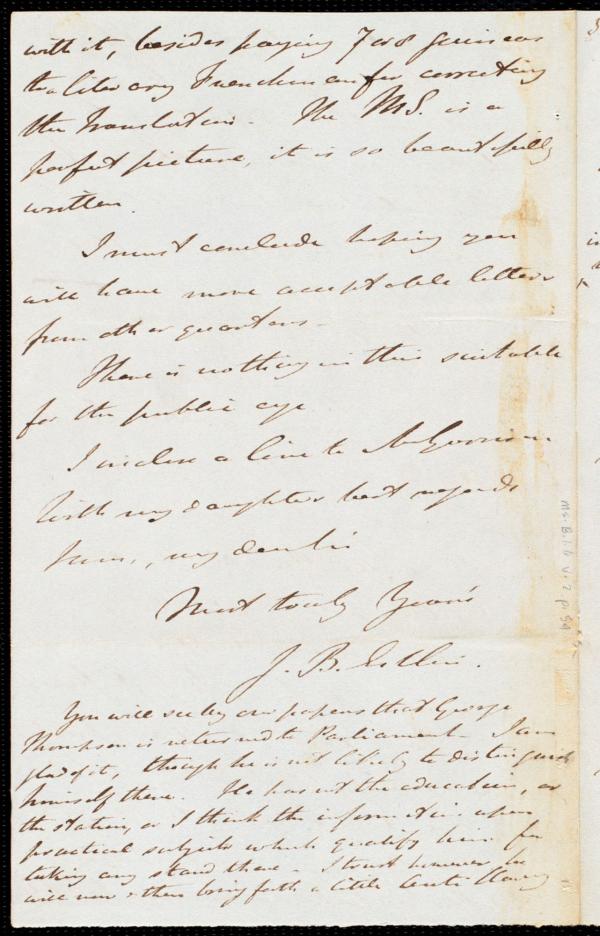 with it, besides paying 7 or 8 guineas
to a literary Frenchman for correcting
the translation. The MS. is a
perfect picture, it is so beautifully
written.
I must conclude hoping you
will have more acceptable letters
from other quarters.
There is nothing in this suitable
for the public eye
I inclose a line to Mr Garrison
With my daughter's best regards
I am, my dear Sir
Most truly Yours
J. B. Estlin.
You will see by our papers that George
Thompson is returned to Parliament. I am
glad of it, though he is not likely to distinguish
himself there. He has not the education, or
the station, or I think the information upon
practical subjects which qualify him for
taking any stand there. I trust however he
will now & then bring forth a little Anti Slavery
Ms. B. 1. 6 v. 2 p. 54